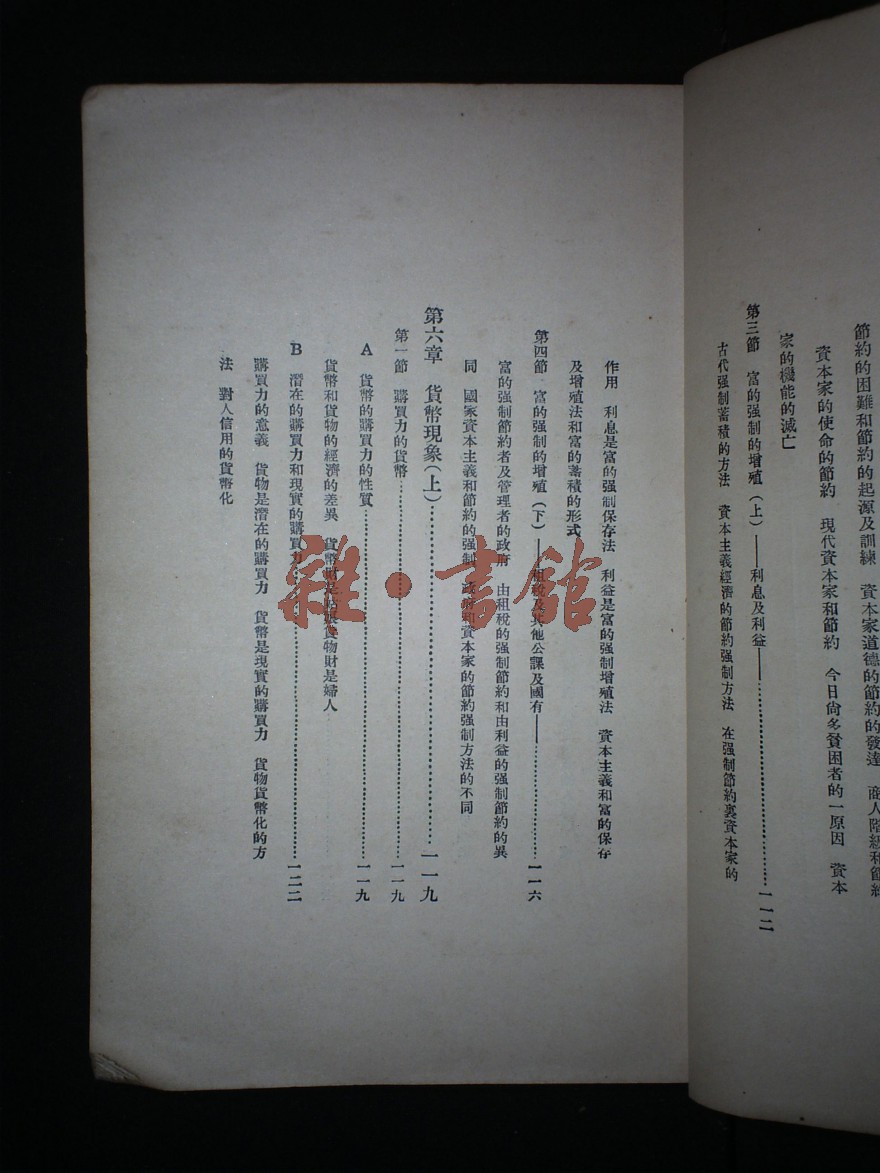 節約的困難和節約的起源及訓練　資本家道德的節約的發達　商人階級和節約
資本家的使命的節約　現代資本家和節約　今日尙多貧困者的一原因　資本
家的機能的滅亡
第三節　富的强制的增殖（上）——利息及利益——…………一一二
古代强制蓄積的方法　資本主義經濟的節約强制方法　在强制節約裏資本家的
作用　利息是富的强制保存法　利益是富的强制增殖法　資本主義和富的保存
及增殖法和富的蓄積的形式
第四節　富的强制的增殖（下）——租稅及其他公課及國有——…………一一六
富的强制節約者及管理者的政府　由租稅的强制節約和由利益的强制節約的異
同　國家資本主義和節約的强制　政府和資本家的節約强制方法的不同
第六章　貨幣現象（上）…………一一九
第一節　購買力的貨幣…………一一九
A　貨幣的購買力的性質…………一一九
貨幣和貨物的經濟的差異　貨幣財是　貨物財是婦人
B　潛在的購買力和現實的購買力…………一二二
購買力的意義　貨物是潛在的購買力　貨幣是現實的購買力　貨物貨幣化的方
法　對人信用的貨幣化
雜·書館